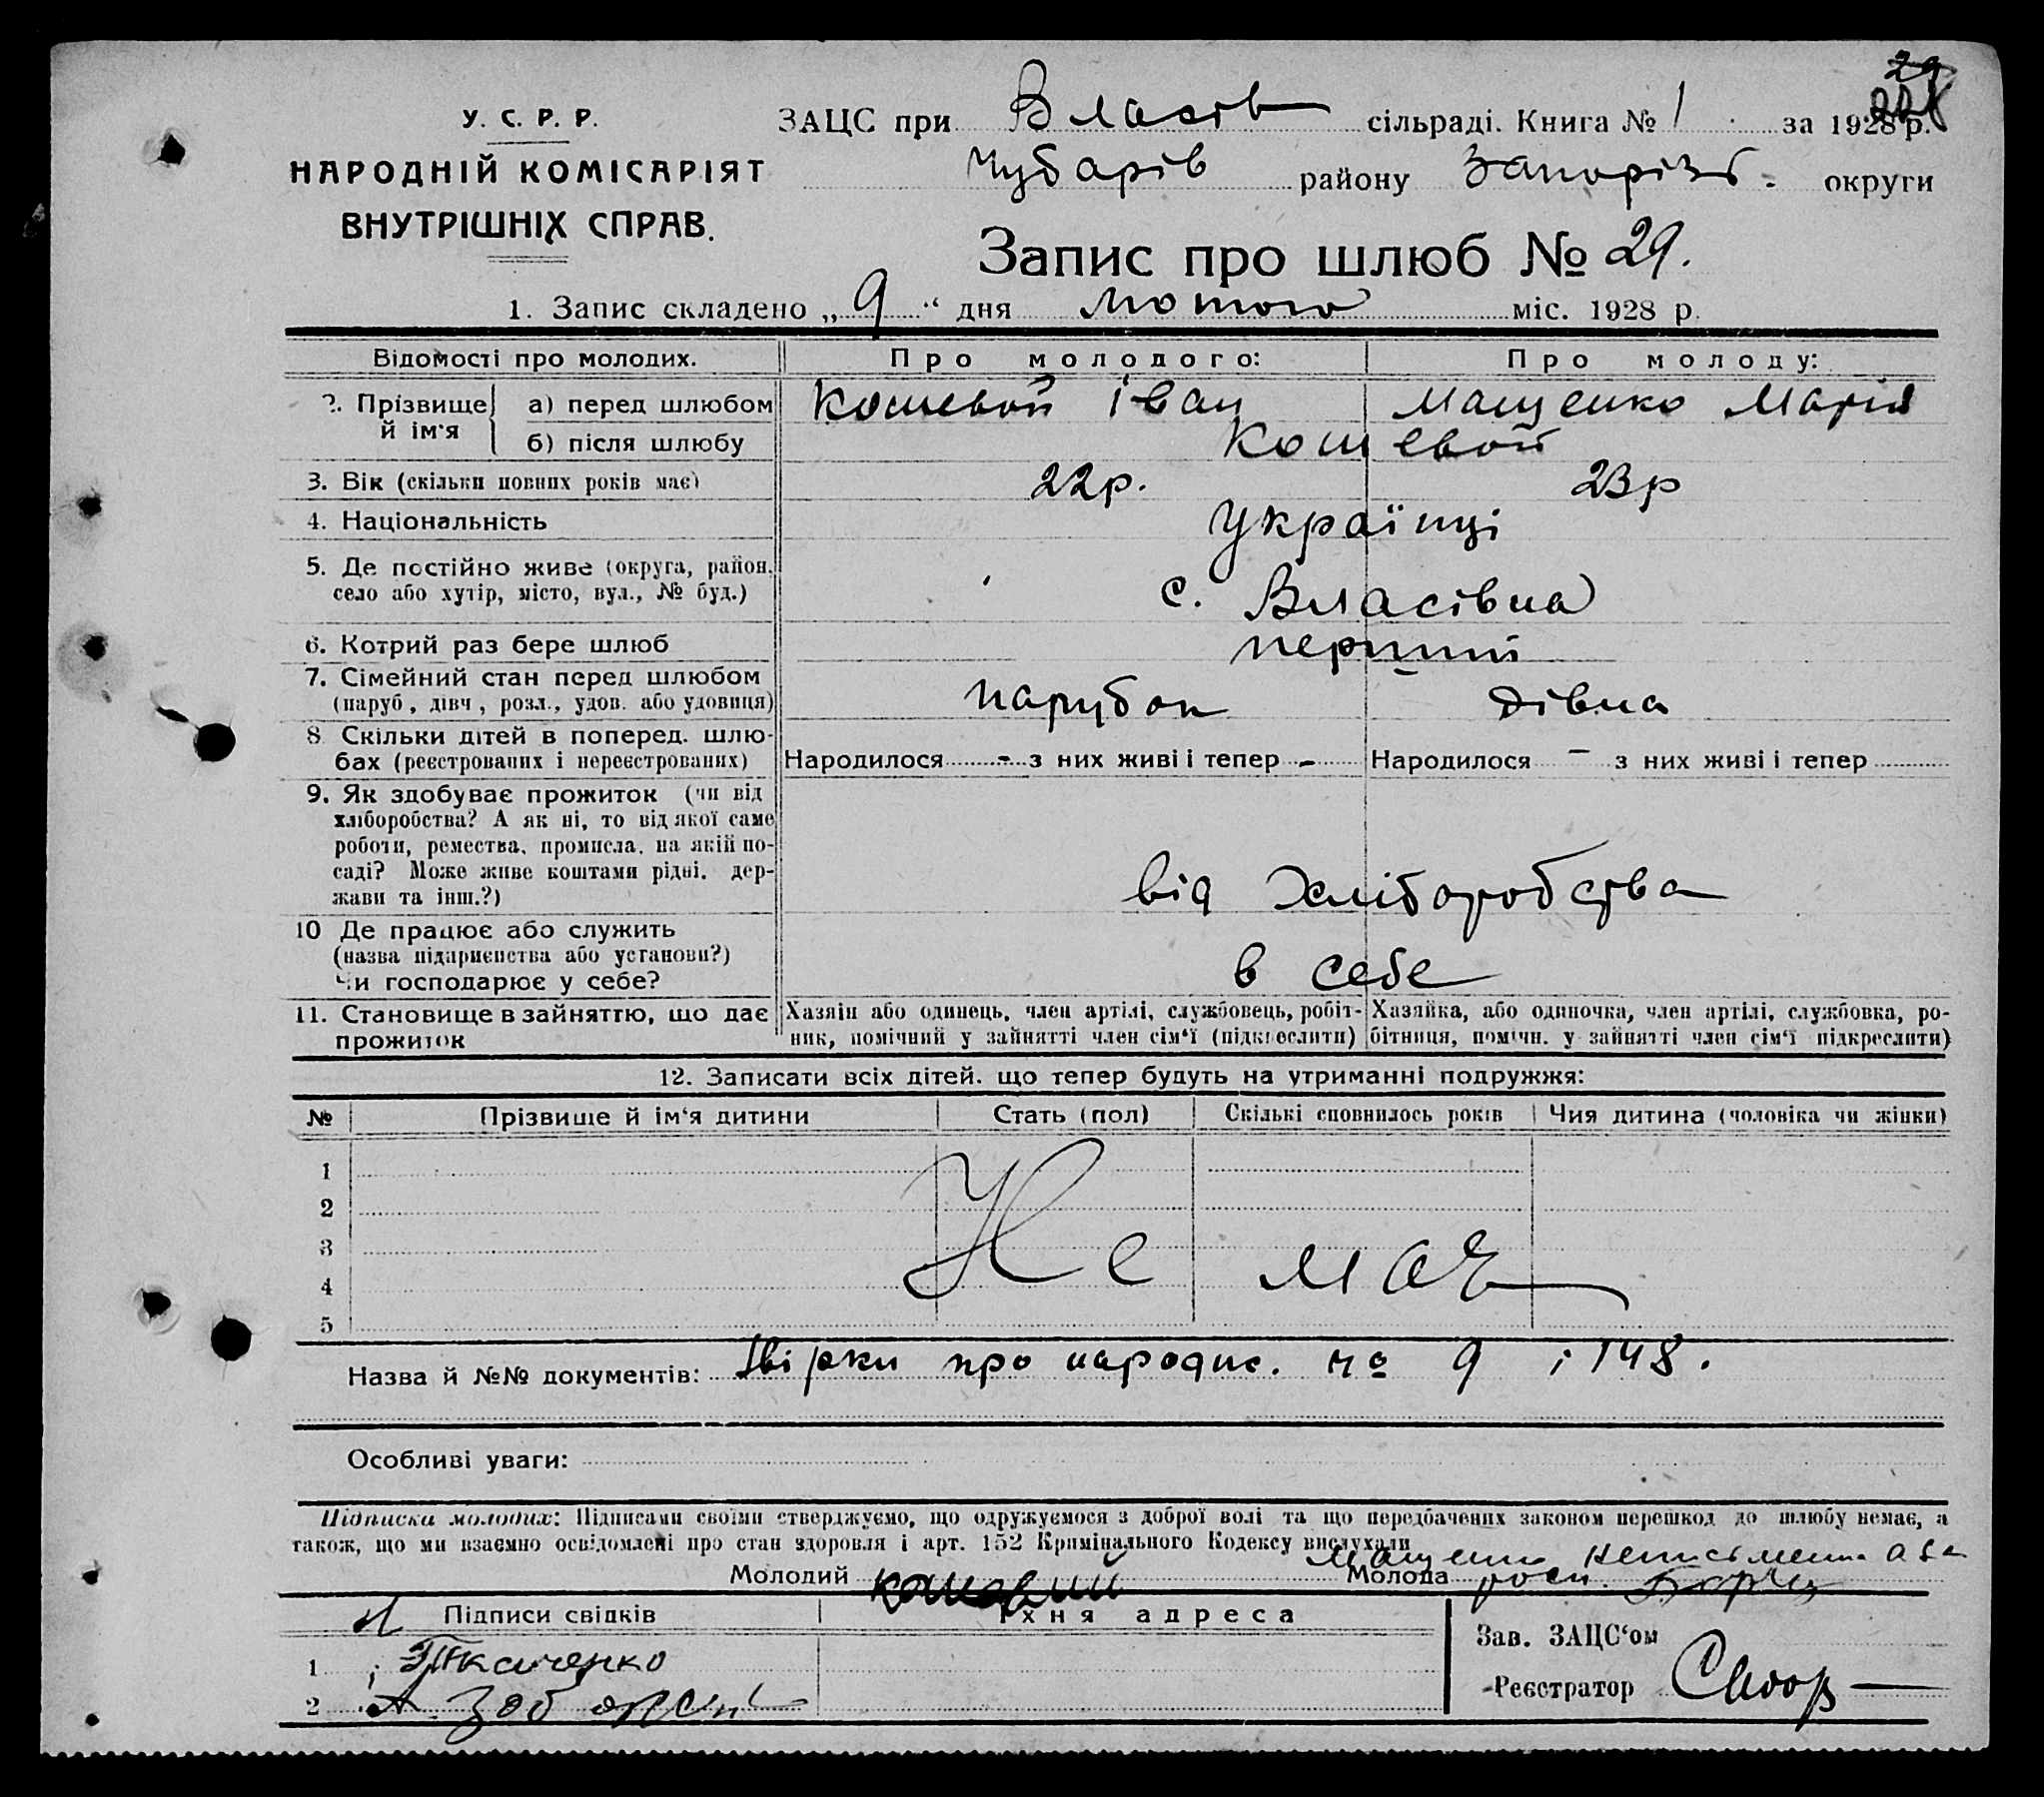 У. С. Р. Р.
НАРОДНІЙ КОМІСАРІЯТ
ВНУТРІШНІХ СПРАВ.
29
ЗАЦС при Власів сільраді. Книга № 1 за 1928 р.
Чубарів району Запорізь. округи
Запис про шлюб № 29.
1. Запис складено „ 9 “ дня лютого міс. 1928 р.
Відомості про молодих. Про молодого: Про молоду:
2. Прізвище й ім'я а) перед шлюбом Кошевой Іван Мащенко Марія
б) після шлюбу Кошевой
3. Вік (скільки повних років має) 22р. 23р
4. Національність Українці
5. Де постійно живе (округа, район,
село або хутір, місто, вул., № буд.) с. Власівка
6. Котрий раз бере шлюб перший
7. Сімейний стан перед шлюбом
(паруб, дівч, розл., удов. або удовиця) парубок дівка
8 Скільки дітей в поперед. шлю-
бах (реєстрованих і нереєстрованих) Народилося - з них живі і тепер - Народилося - з них живі і тепер
9. Як здобуває прожиток (чи від
хліборобства? А як ні, то від якої саме
роботи, ремества, промисла, на якій по-
саді? Може живе коштами рідні, дер-
жави та інш.?) від хліборобства
10 Де працює або служить
(назва підприємства або установи?)
Чи господарює у себе? в себе
11. Становище в зайняттю, що дає
прожиток
Хазяїн або одинець, член артілі, службовець, робіт-
ник, помічний у зайнятті член сім'ї (підкреслити)
Хазяйка, або одиночка, член артілі, службовка, ро-
бітниця, помічн. у зайнятті член сім'ї підкреслити)
12. Записати всіх дітей, що тепер будуть на утриманні подружжя:
№ Прізвище й ім'я дитини Стать (пол) Скількі сповнилось років Чия дитина (чоловіка чи жінки)
1
2
3
4
5
Не має
Назва й №№ документів: про народже. № 9 і 148.
Особливі уваги:
Підписка молодих: Підписами своїми стверджуємо, що одружуємося з доброї волі та що передбачених законом перешкод до шлюбу немає, а
також, що ми взаємно освідомлені про стан здоров'я і арт. 152 Кримінального Кодексу вислухали
Молодий Кошевий Молода
Підписи свідків Їхня адреса
1 Ткаченко
2 А.
Зав. ЗАЦС'ом
Реєстратор